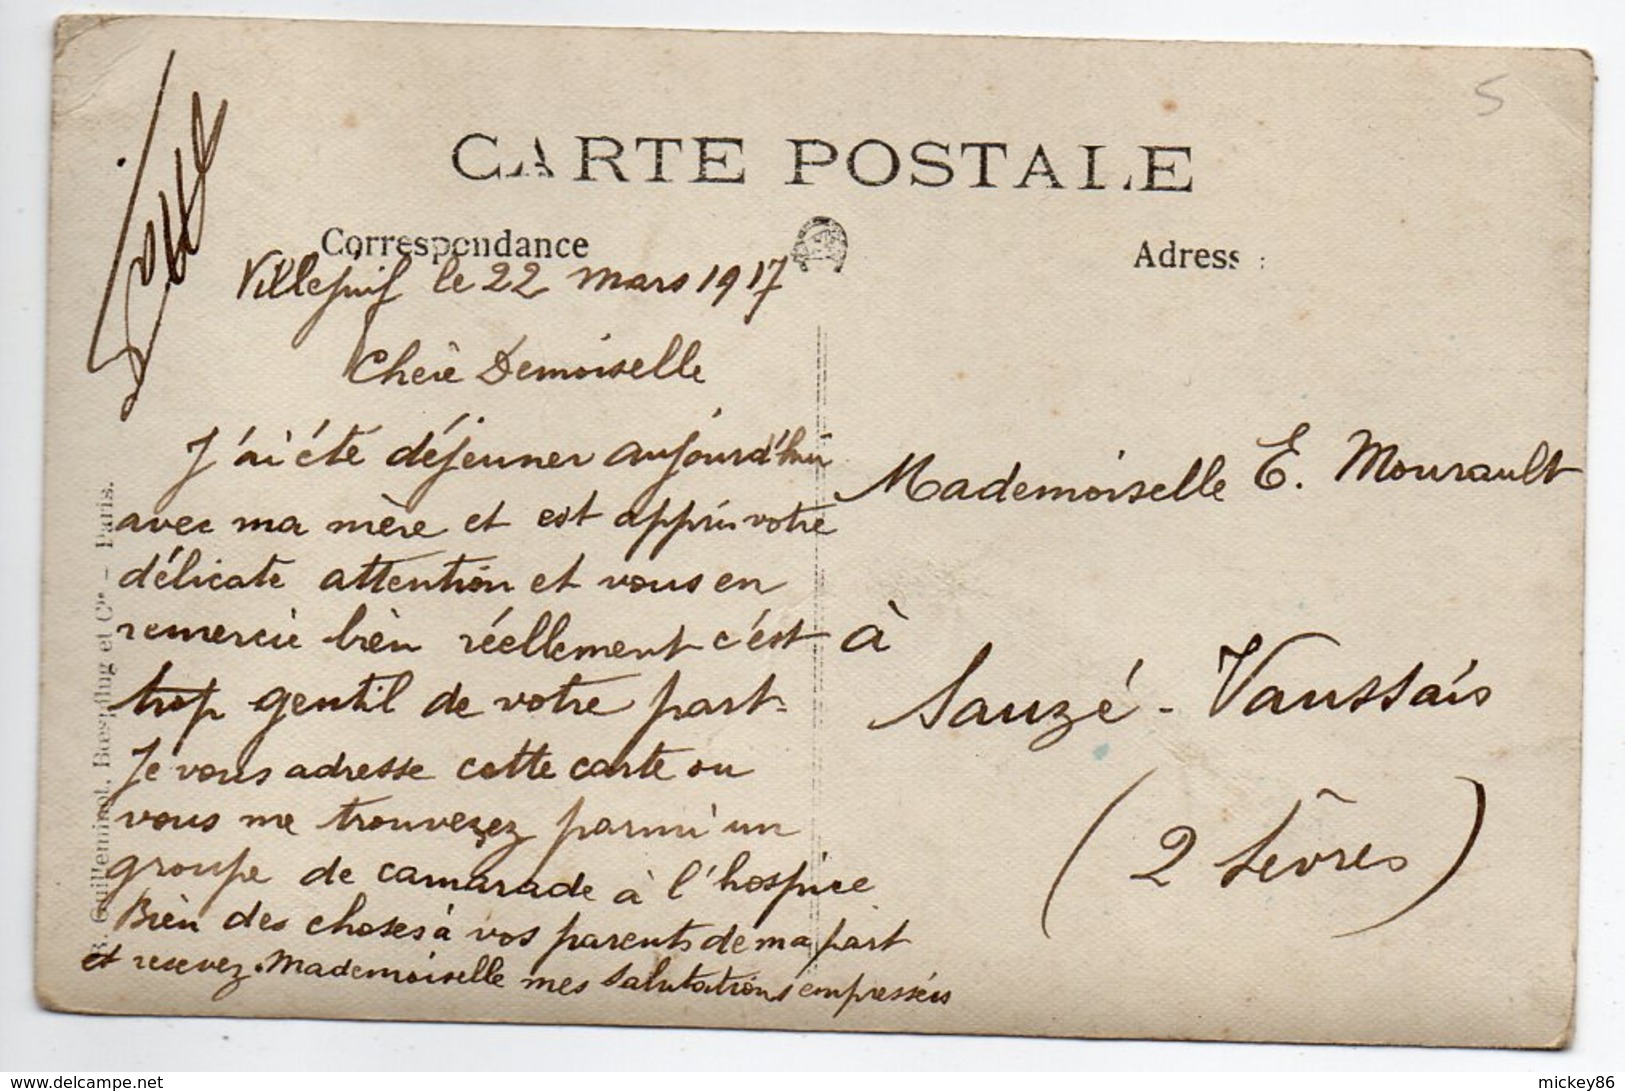 5
CARTE POSTALE
Correspondance
Adress :
Villejuif le 22 mars 1917
Chère Demoiselle
J'ai été déjeuner aujourd'hui
avec ma mère et est appris votre
délicate attention et vous en
remercie bien réellement c'est
trop gentil de votre part.
Je vous adresse cette carte ou
vous me trouverez parmi un
groupe de camarade à l'hospice
Bien des choses à vos parents de ma part
et recevez Mademoiselle mes salutations empressés
Mademoiselle E. Mourault
à
Sauzé-Vaussais
(2 Sèvres)
R. Guilleminot, Bœspflug et Cie – Paris.
mickey86
delcampe.net